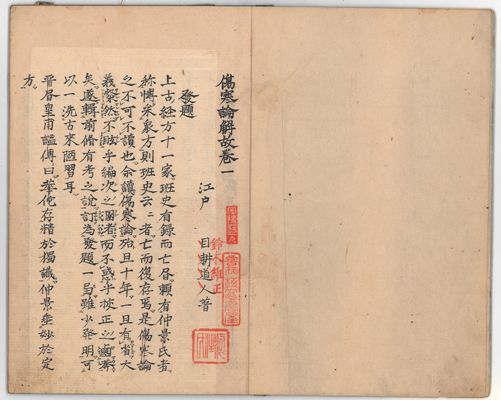 傷寒論解故卷一
江戶 目耕道人著
鈴木維正
發題
上古經方十一家班史有錄而亡昔賴有仲景氏者
称博采衆方則班史云云者亡而復存焉是傷寒論
之不可不讀也余讀傷寒論殆且十年一旦有省大
義粲然不眩乎編次之 而不惑乎撰正之
矣遂輯前脩有考之說訂為發題一 雖少發明可
以一洗古來陋習耳
晉皇甫謐傳曰華佗存精於獨識仲景垂妙於定
方